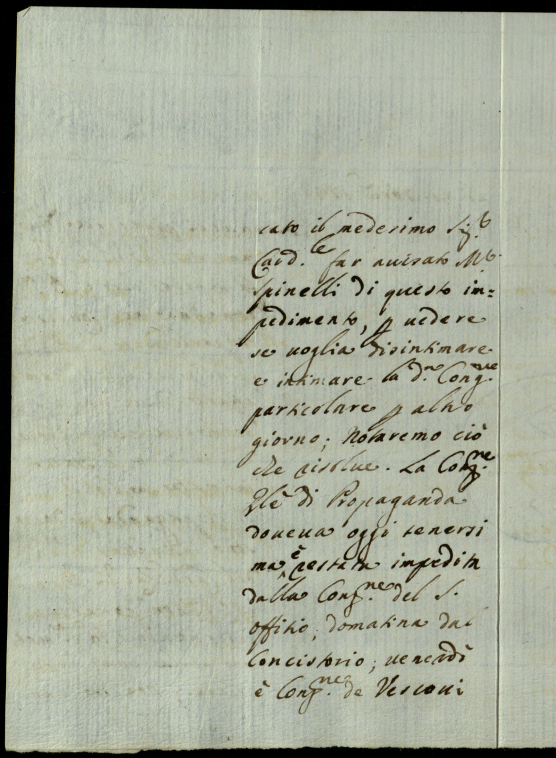 cato il medesimo Sig.r
Card.le far avisato M.r
Spinelli di questo im=
pedimento, p vedere
se voglia disintimare
e intimare la d.a Cong.ne
particolare p altro
giorno; Notaremo ciò
che risolve. La Cong.ne
Gle di Propaganda
doveva oggi tenersi
ma è restata impedita
dalla Cong.ne del S.
Offitio, domatina dal
Concistorio; venerdì
è Cong.ne de Vescovi